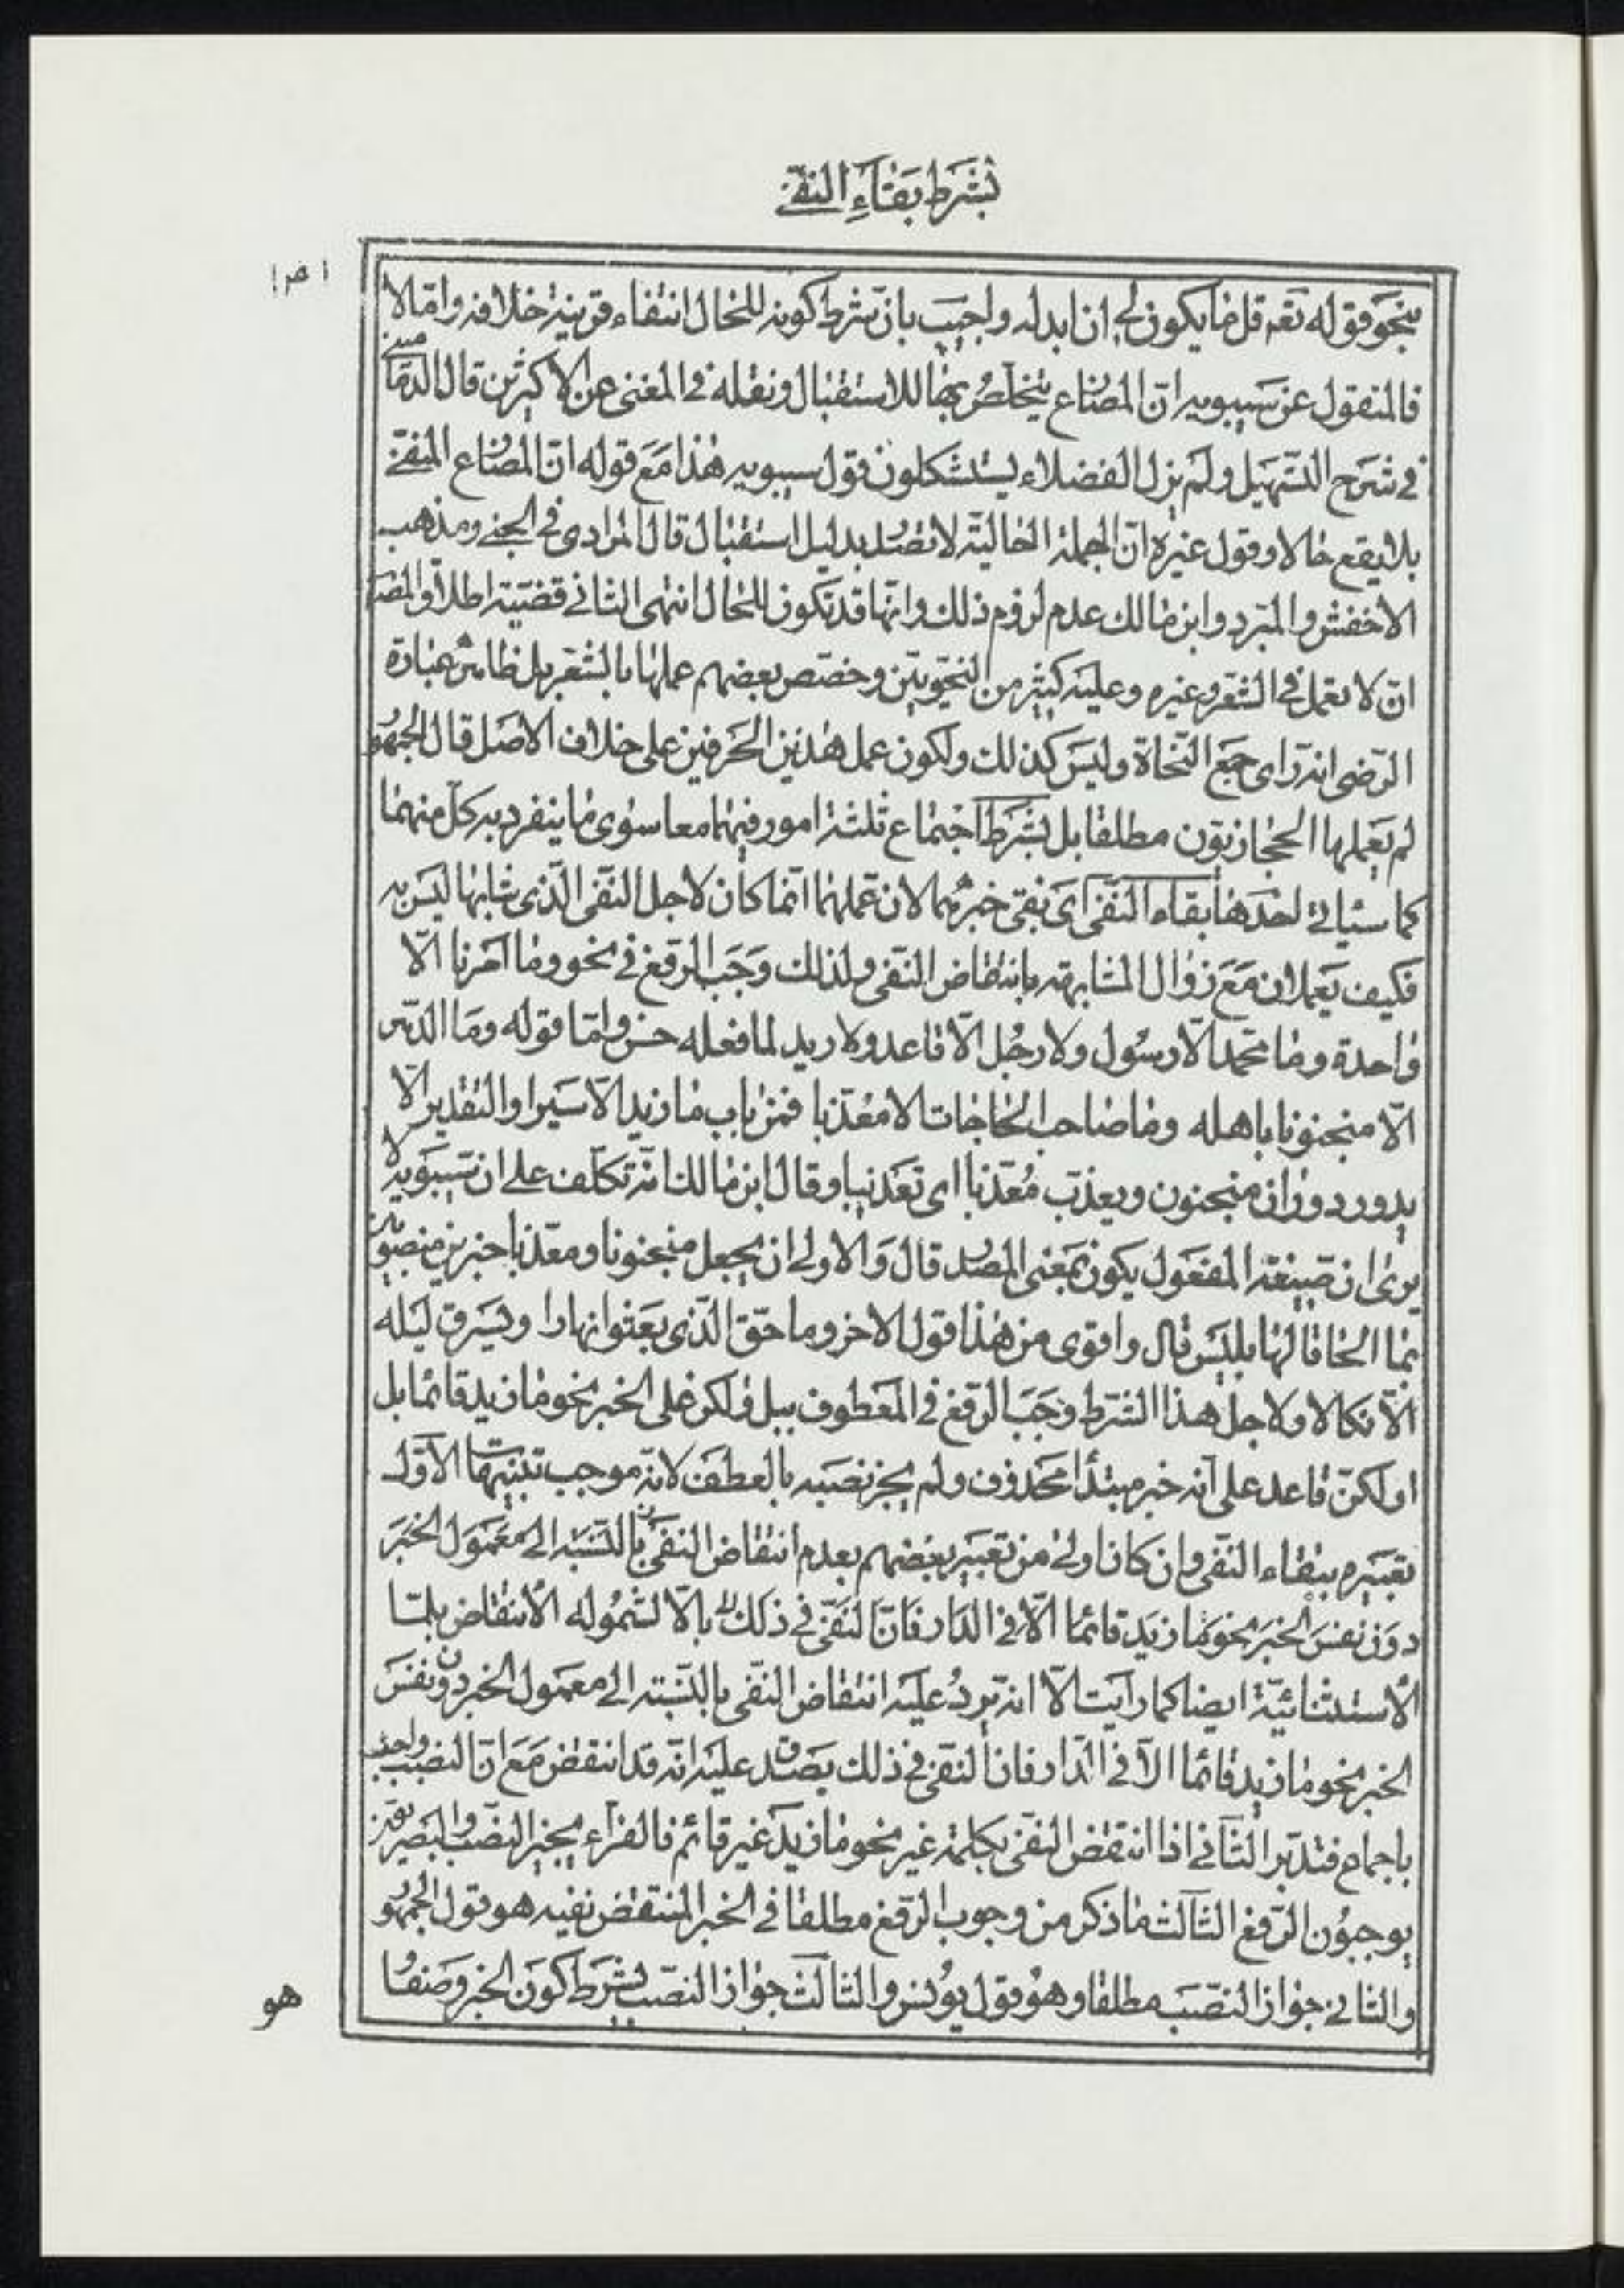 بشَرط بقاءِ النفي
بنحو قوله تعم قل ما يكون لى ان ابدله واجيب بانّ شرط كونه للحال انتفاء قرينة خلافه وامّا لا
فالمنقول عن سيبويه انّ المضارع يتخلّص بها للاستقبال ونقله فى المغنى عن الاكثرين قال الدّمامينى
فى شرح التّسهيل ولم يزل الفضلاء يستشكلون قول سيبويه هذا مع قوله انّ المضارع المنفىّ
بلا يقع حالا وقول غيره انّ الجملة الحاليّة لا تصدّر بدليل استقبال قال المرادى فى الجنى ومذهب
الاخفش والمبرّد وابن مالك عدم لزوم ذلك وانّها قد تكون للحال انتهى الثانى قضيّة اطلاق المصنف
انّ لا تعمل فى الشّعر وغيره وعليه كثير من النحويّين وخصّص بعضهم عملها بالشّعر بل ظاهر عبارة
الرّضى انه راى جميع النّحاة وليس كذلك ولكون عمل هذين الحرفين على خلاف الاصل قال الجمهور
لم يعملها الحجازيّون مطلقا بل بشَرط اجتماع ثلثة امور فيهما معا سوى ما ينفرد به كلّ منهما
كما سيأتى احدها بقاء النّفى اى نفى خبرهما لانّ عملهما انّما كان لاجل النّفى الّذى شابها ليس به
فكيف يعملان مع زوال المشابهة بانتقاض النّفى ولذلك وجب الرّفع فى نحو وما امرنا الّا
واحدة وما محمّد الّا رسول ولا رجل الّا قاعد ولا ريد لما فعله حسن وامّا قوله وما الدّهر
الّا منجنونا باهله وما صاحب الحاجات الا معذّبا فمن باب ما زيد الّا سيرا والتقدير الّا
يدور دوران منجنون ويعذّب معذّبا اى تعذيبا وقال ابن مالك انّه تكلّف على ان سيبويه لا
يرى ان صيغة المفعول يكون بمعنى المصدر قال والاولى ان يجعل منجنونا ومعذّبا خبرين منصوبين
بما الحاقا لها بليس قال واقوى من هذا قول الاخر وما حقّ الّذى يعثو نهارا ويسرق ليله
الّا نكالا ولاجل هذا الشّرط وجب الرّفع فى المعطوف ببل ولكن على الخبر نحو ما زيد قائما بل
او لكنّ قاعد على انه خبر مبتدأ محذوف ولم يجز نصبه بالعطف لانه موجب تنبيهات الاوّل
تعبيره ببقاء النّفى وان كان اولى من تعبير بعضهم بعدم انتقاض النفى بالنّسبة الى معمول الخبر
دون نفس الخبر نحو ما زيد قائما الّا فى الدّار فانّ النّفى فى ذلك بالّا لشموله الانتقاض بلمّا
الاستثنائيّة ايضا كما رأيت الّا انه يرد عليه انتقاض النّفى بالنّسبة الى معمول الخبر دون نفس
الخبر نحو ما زيد قائما الّا فى الدّار فانّ النفى فى ذلك يصدق عليه انّه قد انتقض مع انّ النصب واجب
باجماع فتدبّر الثّانى اذا انتقض النفى بكلمة غير نحو ما زيد غير قائم فالفرّاء يجيز النّصب والبصريّون
يوجبون الرّفع الثّالث ما ذكر من وجوب الرّفع مطلقا فى الخبر المنتقض نفيه هو قول الجمهور
والثانى جواز النّصب مطلقا وهو قول يونس والثالث جواز النّصب بشرط كون الخبر وصفا
هو